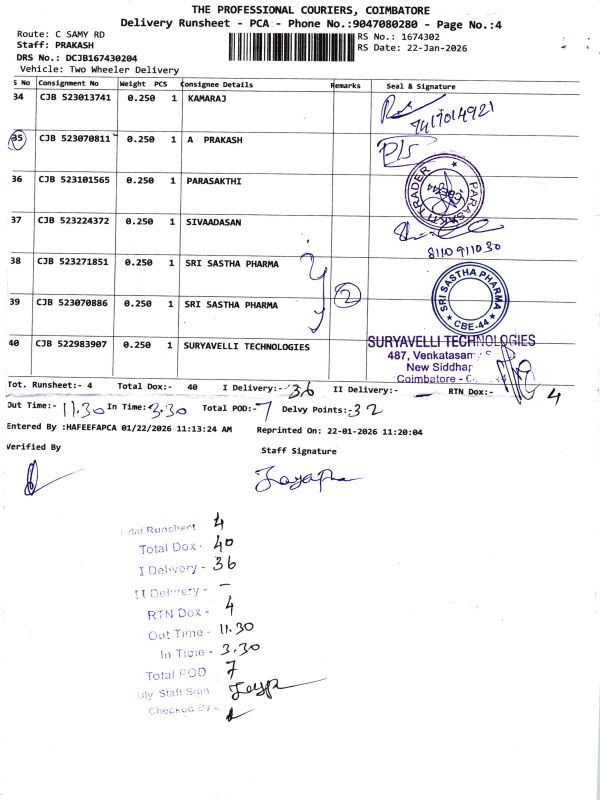 THE PROFESSIONAL COURIERS, COIMBATORE
Delivery Runsheet - PCA - Phone No.:9047080280 - Page No.:4
Route: C SAMY RD
RS No.: 1674302
Staff: PRAKASH
RS Date: 22-Jan-2026
DRS No.: DCJB167430204
Vehicle: Two Wheeler Delivery
S No Consignment No Weight PCS Consignee Details Remarks Seal & Signature
34 CJB 523013741 0.250 1 KAMARAJ
7417014921
35 CJB 523070811 0.250 1 A PRAKASH
P/S
36 CJB 523101565 0.250 1 PARASAKTHI
PARASAKTI TRADER
CBE-44
37 CJB 523224372 0.250 1 SIVAADASAN
8110911030
38 CJB 523271851 0.250 1 SRI SASTHA PHARMA
2
39 CJB 523070886 0.250 1 SRI SASTHA PHARMA
SRI SASTHA PHARMA
CBE-44
40 CJB 522983907 0.250 1 SURYAVELLI TECHNOLOGIES
SURYAVELLI TECHNOLOGIES
487, Venkatasam
New Siddha
Coimbatore -
Tot. Runsheet:- 4 Total Dox:- 40 I Delivery:- 36 II Delivery:- — RTN Dox:- 4
Out Time:- 11.30 In Time:- 3.30 Total POD:- 7 Delvy Points:- 32
Entered By :HAFEEFAPCA 01/22/2026 11:13:24 AM Reprinted On: 22-01-2026 11:20:04
Verified By
Staff Signature
Total Runsheet 4
Total Dox - 40
I Delivery - 36
II Delivery - –
RTN Dox - 4
Out Time - 11.30
In Time - 3.30
Total POD 7
Dly Staff Sign
Checked By -